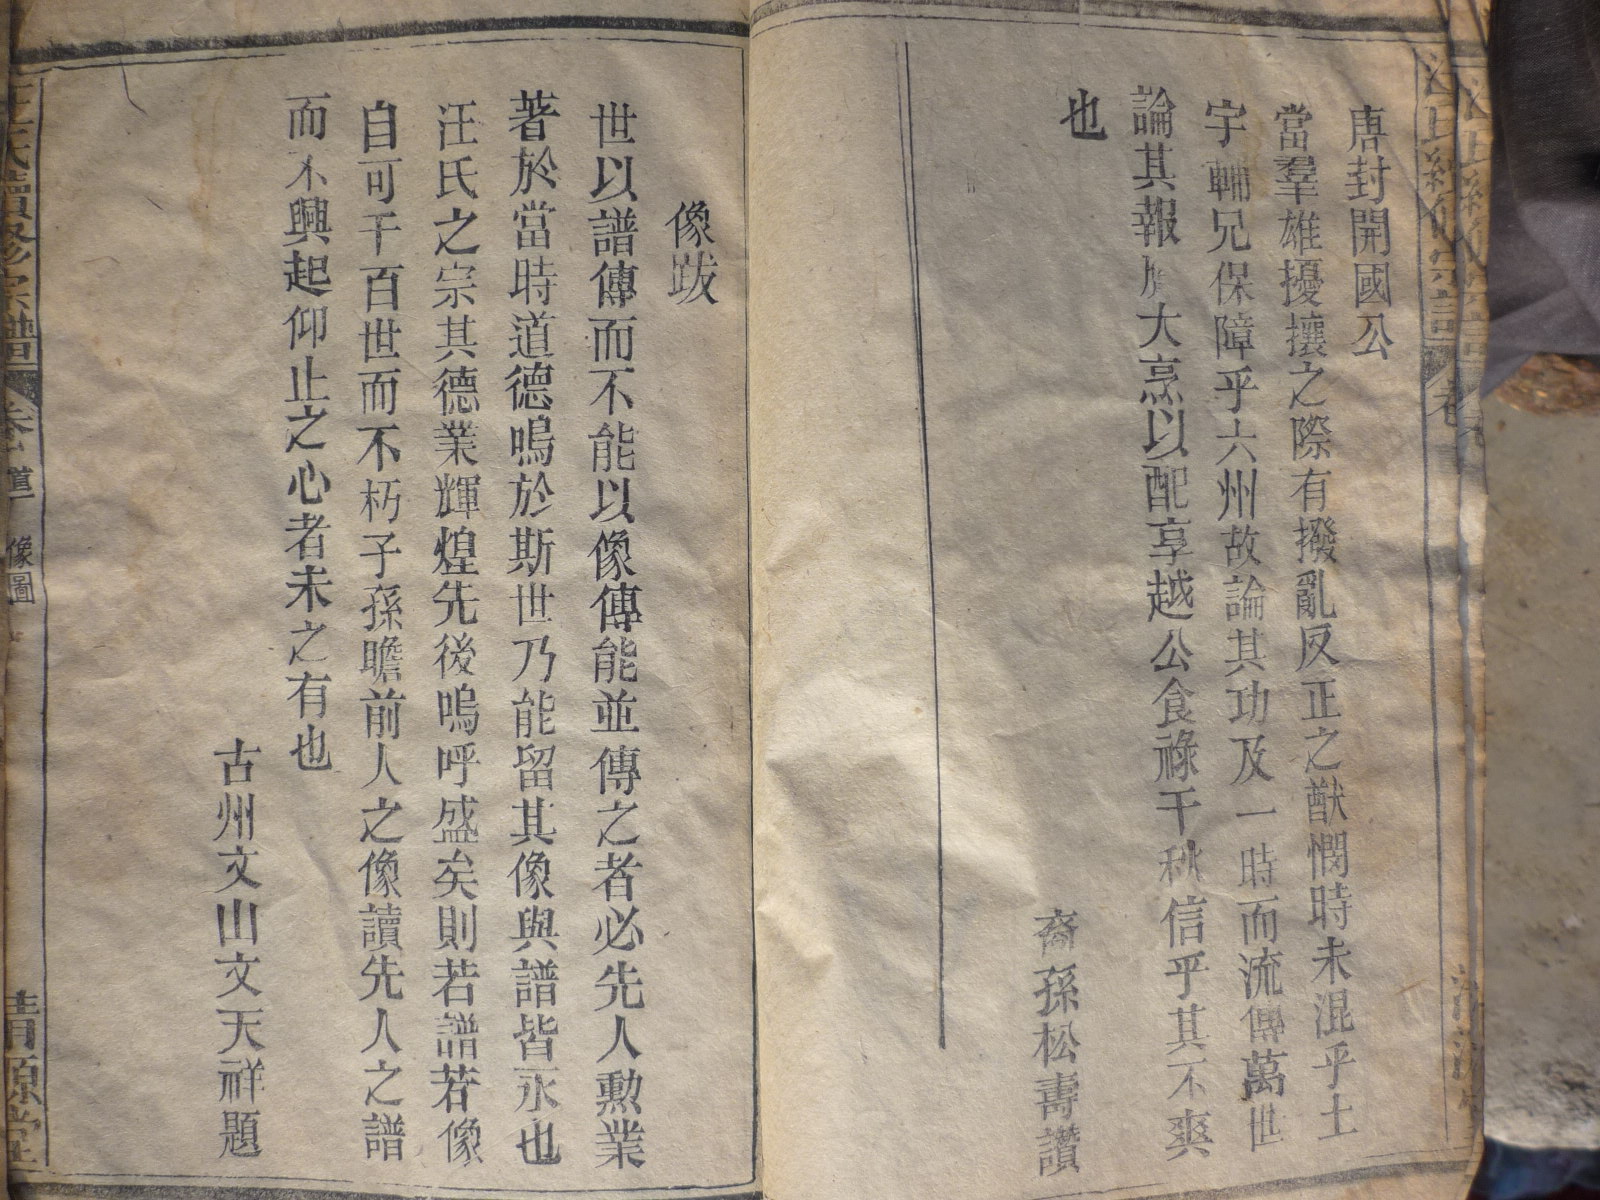 唐封開國公
當羣雄擾攘之際有撥亂反正之猷憫時未混乎土
宇輔兄保障乎六州故論其功及一時而流傳萬世
論其報 大烹以配享越公食祿千秋信乎其不爽
也
裔孫松壽讚
像跋
世以譜傳而不能以像傳能並傳之者必先人勳業
著於當時道德鳴於斯世乃能留其像與譜皆永也
汪氏之宗其德業輝煌先後嗚呼盛矣則若譜若像
自可千百世而不朽子孫瞻前人之像讀先人之譜
而不興起仰止之心者未之有也
古州文山文天祥題
氏續修宗譜
像圖
清源堂